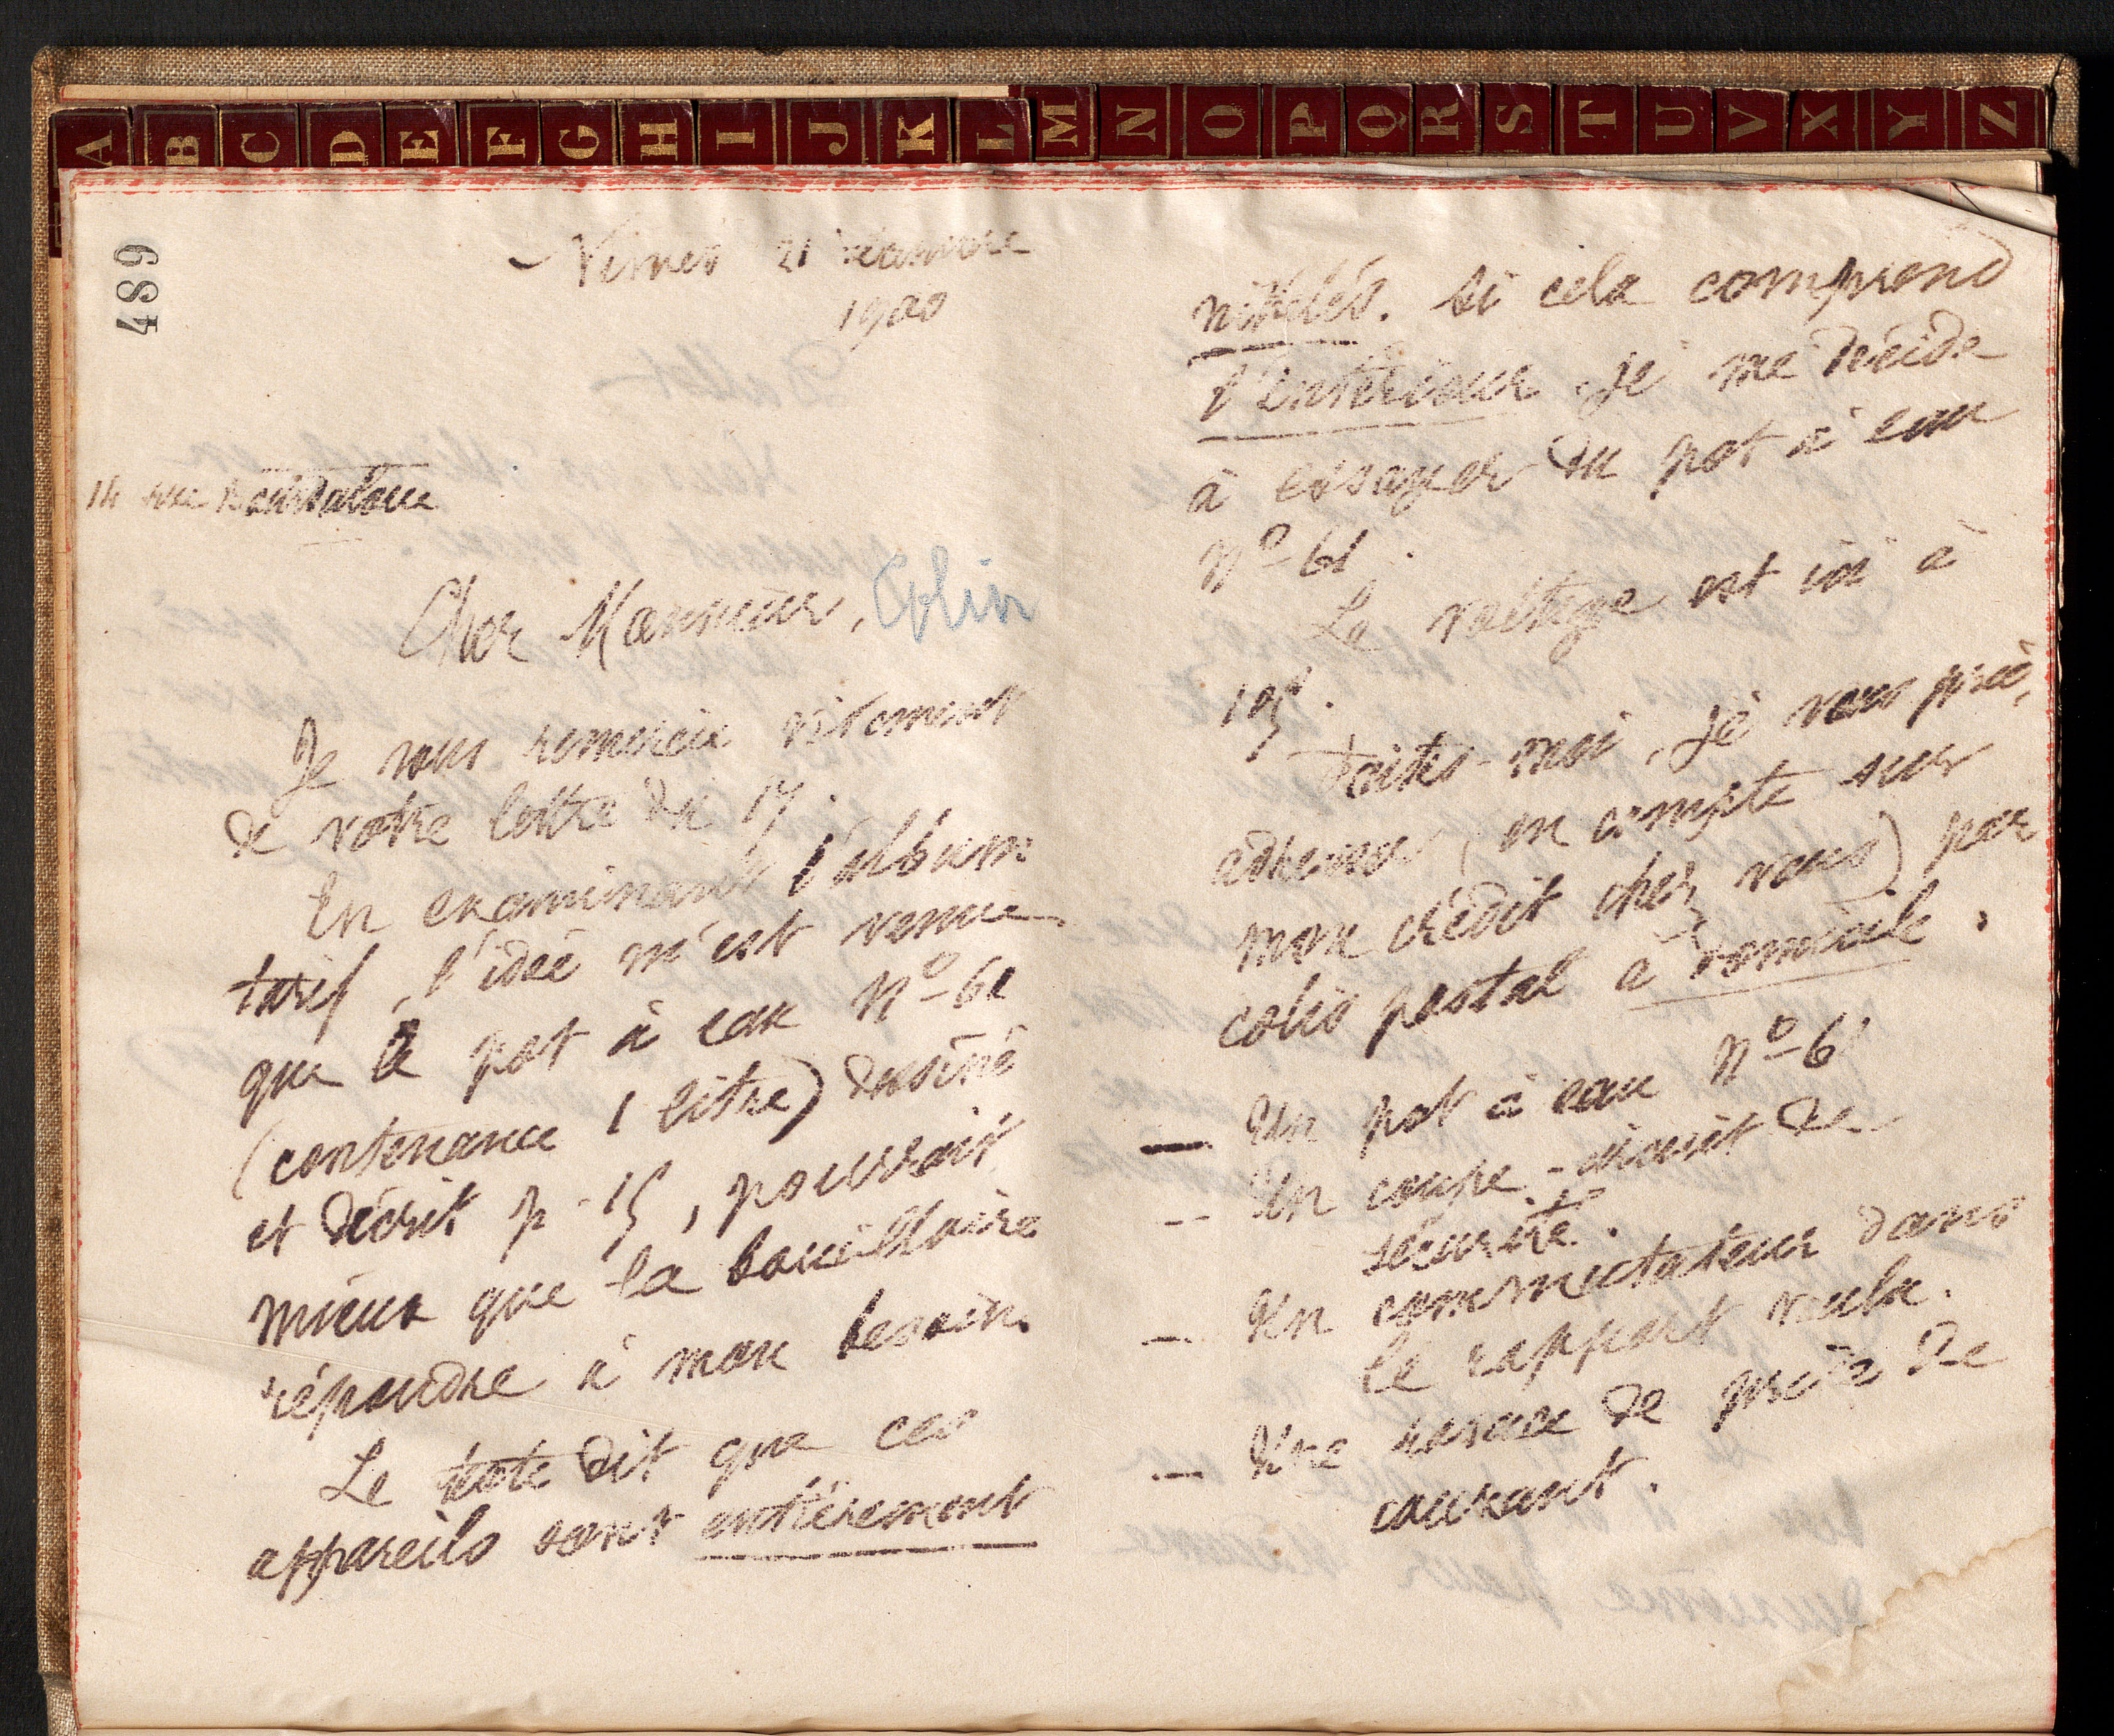 A B C D E F G H I J K L M N O P Q R S T U V X Y Z
489
Nimes 21 décembre
1900
14 rue Bourdaloue
Cher Monsieur, Colin
Je vous remercie vivement
de votre lettre du 17.
En examinant l'album
tarif, l'idée m'est venue
que le pot à eau No 61
(contenance 1 litre) dessiné
et décrit p. 15, pourrait
mieux que la bouilloire
répondre à mon besoin.
Le texte dit que ces
appareils sont entièrement
nickelés. Si cela comprend
l'intérieur, je me décide
à essayer du pot à eau
No 61.
Le voltage est ici à
105.
Faites-moi, je vous prie,
adresser (en compte sur
mon crédit chez vous) par
colis postal à domicile.
— Un pot à eau No 61
— Un coupe-circuit de
sécurité.
— Un commutateur dans
le rapport voulu.
— Une rosace de prise de
courant.